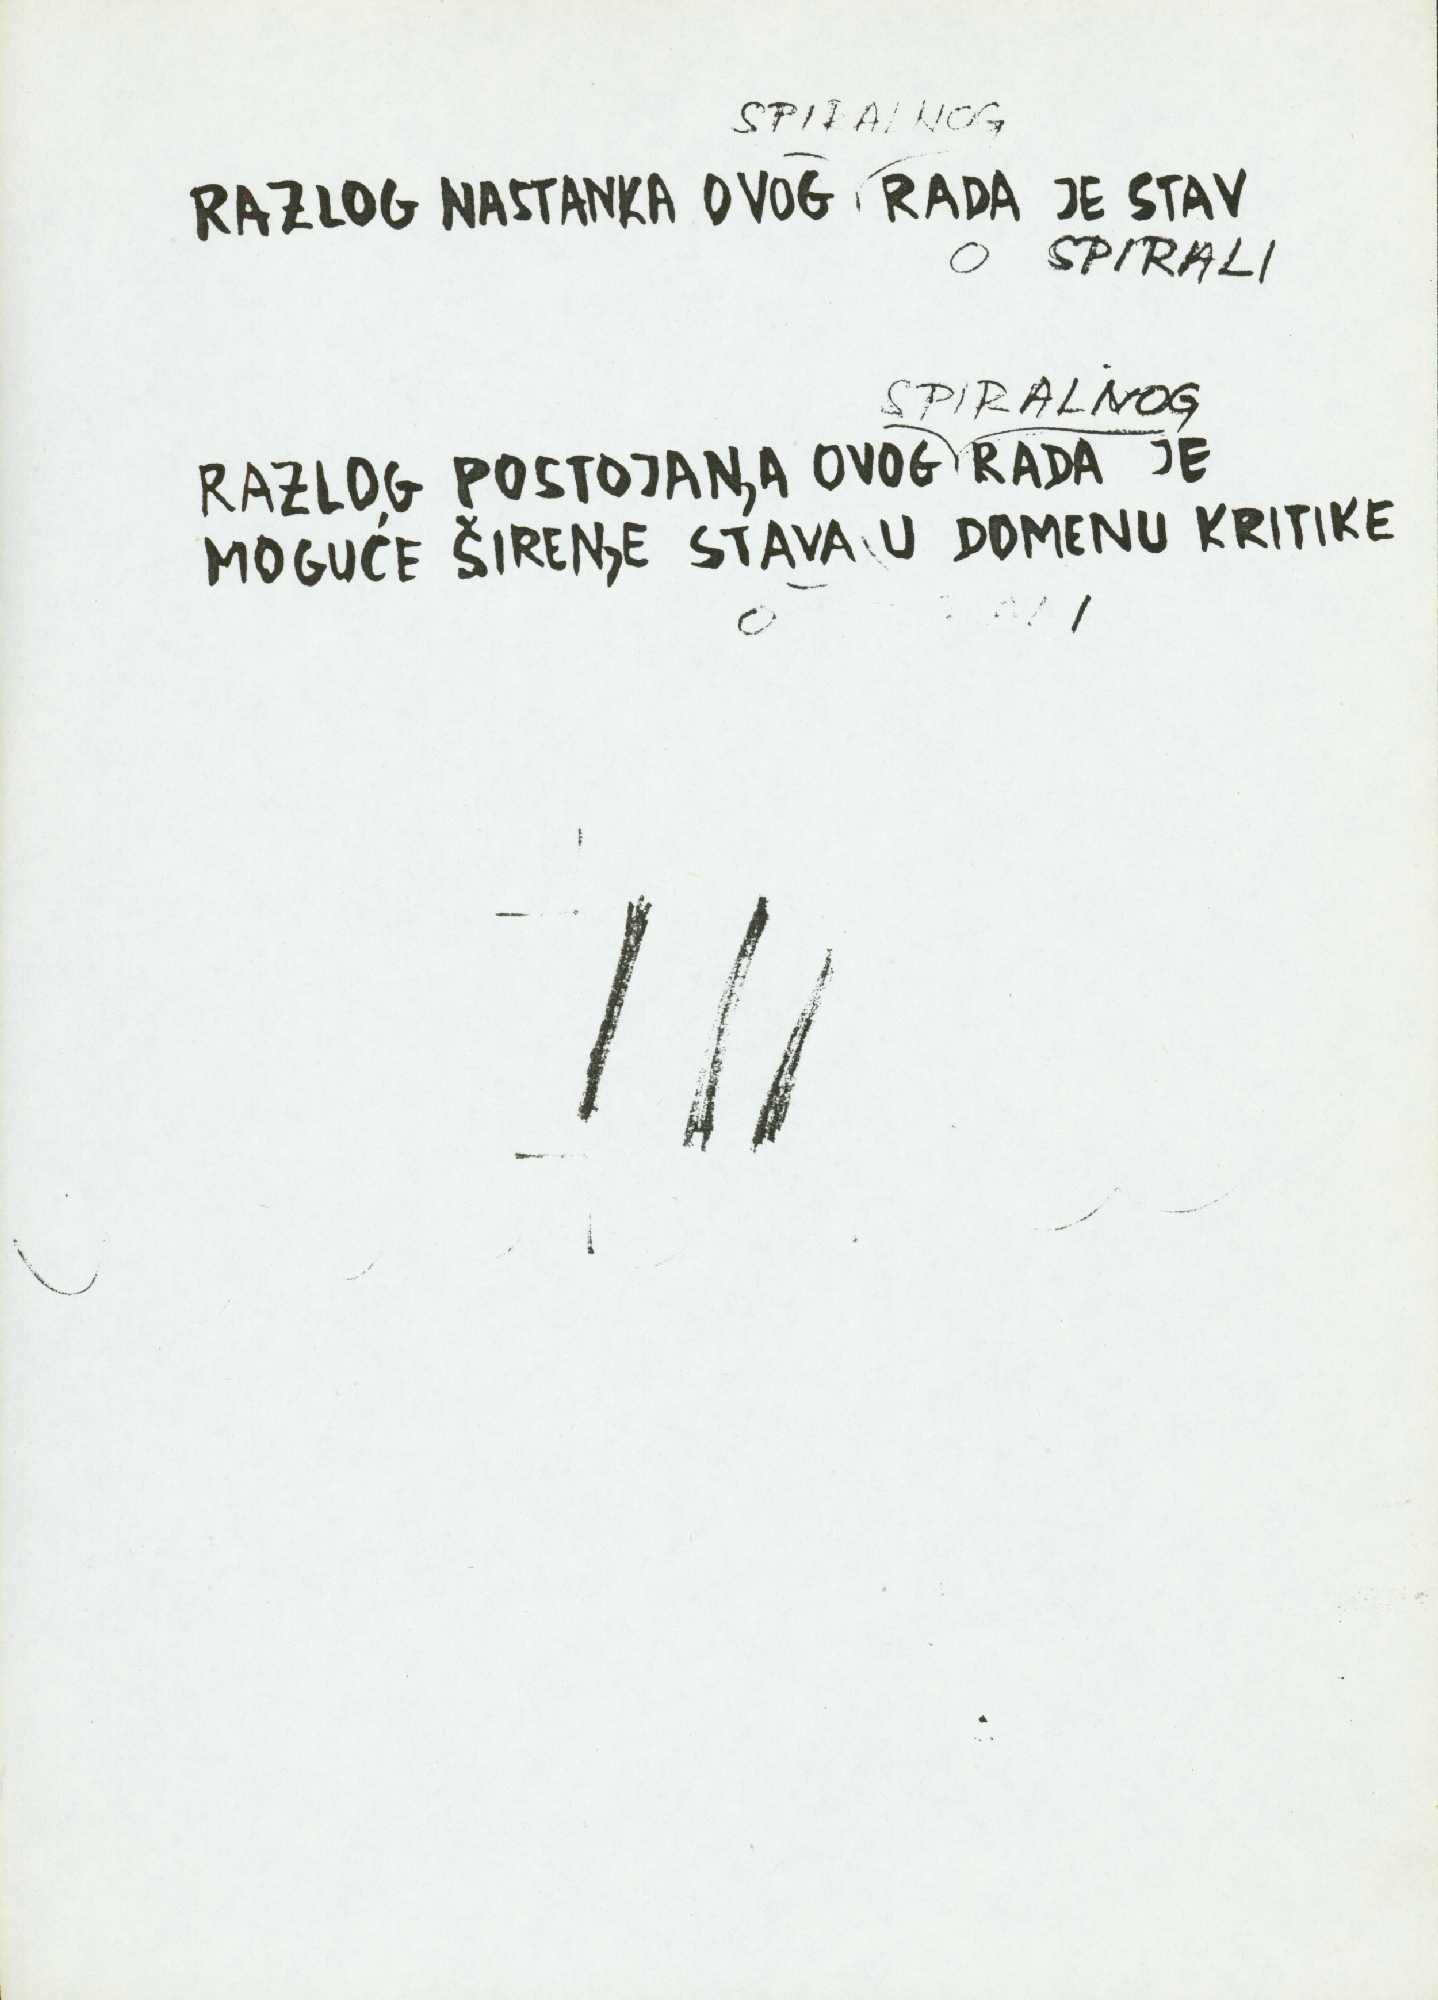 SPIRALNOG
RAZLOG NASTANKA OVOG RADA JE STAV
O SPIRALI
SPIRALNOG
RAZLOG POSTOJANJA OVOG RADA JE
MOGUĆE ŠIRENJE STAVA U DOMENU KRITIKE
O